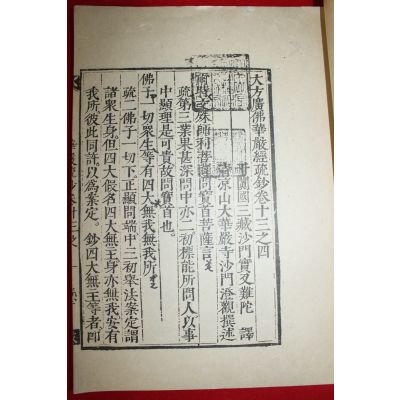 大方廣佛華嚴經疏鈔卷十三之四
于闐國三藏沙門實叉難陀 譯
清涼山大華嚴寺沙門澄觀撰述
爾時文殊師利菩薩問寶首菩薩言
疏第三業果甚深問中亦二初標能所問人以事
中顯理是可貴故問寶首也
佛子一切眾生等有四大無我無我所
疏二佛子一切下正顯問端中三初舉法案定謂
諸眾生身但四大假名四大無主身亦無我安有
我所彼此同許以為案定。鈔四大無主等者即
華嚴疏鈔卷十三之